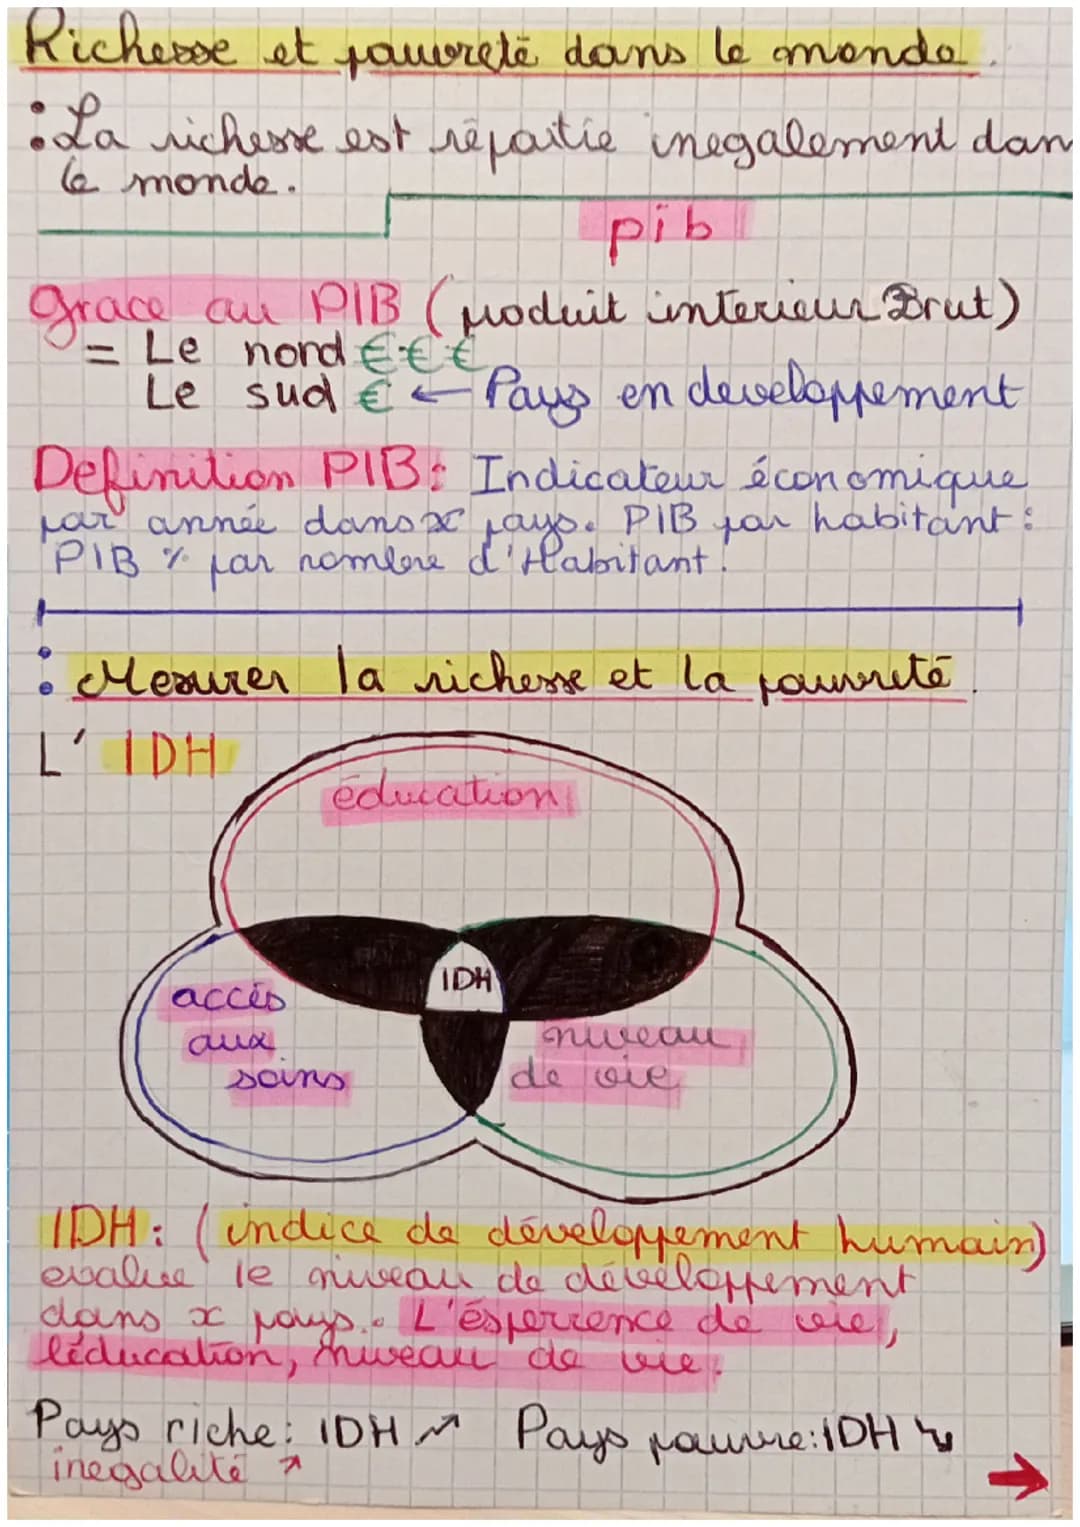 Richesse et pauvreté dans le monde.
: La richesse est répartie inegalement dan
le monde.
pib
grace au PIB (produit interieur Brut)
= Le nord €€€
Le sud € ← Pays en developpement
Definition PIB: Indicateur économique
par année dans x pays. PIB par habitant:
PIB % par nombre d'Habitant.
: Mesurer la richesse et la pauvreté.
L' IDH
éducation
IDH
accès
aux
soins
niveau
de vie
IDH: (indice de développement humain)
evalue le niveau de développement
dans x pays. L'ésperrence de vie,
l'éducation, niveau de vie.
Pays riche: IDH ↗ Pays pauvre: IDH ↘
inegalité ↗
→